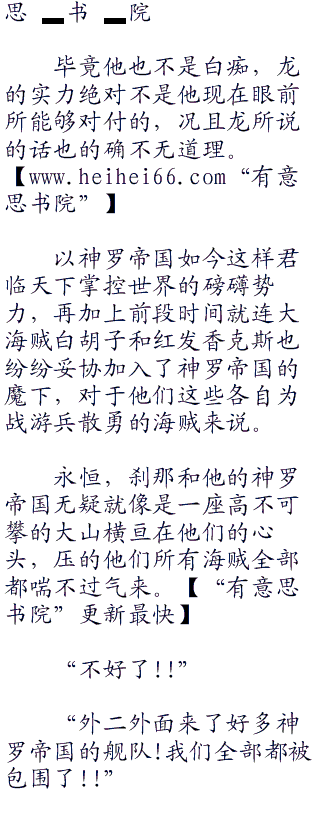 思 ▂书 ▂院
毕竟他也不是白痴，龙
的实力绝对不是他现在眼前
所能够对付的，况且龙所说
的话也的确不无道理。
【www.heihei66.com“有意
思书院”】
以神罗帝国如今这样君
临天下掌控世界的磅礴势
力，再加上前段时间就连大
海贼白胡子和红发香克斯也
纷纷妥协加入了神罗帝国的
魔下，对于他们这些各自为
战游兵散勇的海贼来说。
永恒，刹那和他的神罗
帝国无疑就像是一座高不可
攀的大山横亘在他们的心
头，压的他们所有海贼全部
都喘不过气来。【“有意思
书院”更新最快】
“不好了!!”
“外二外面来了好多神
罗帝国的舰队!我们全部都被
包围了!!”